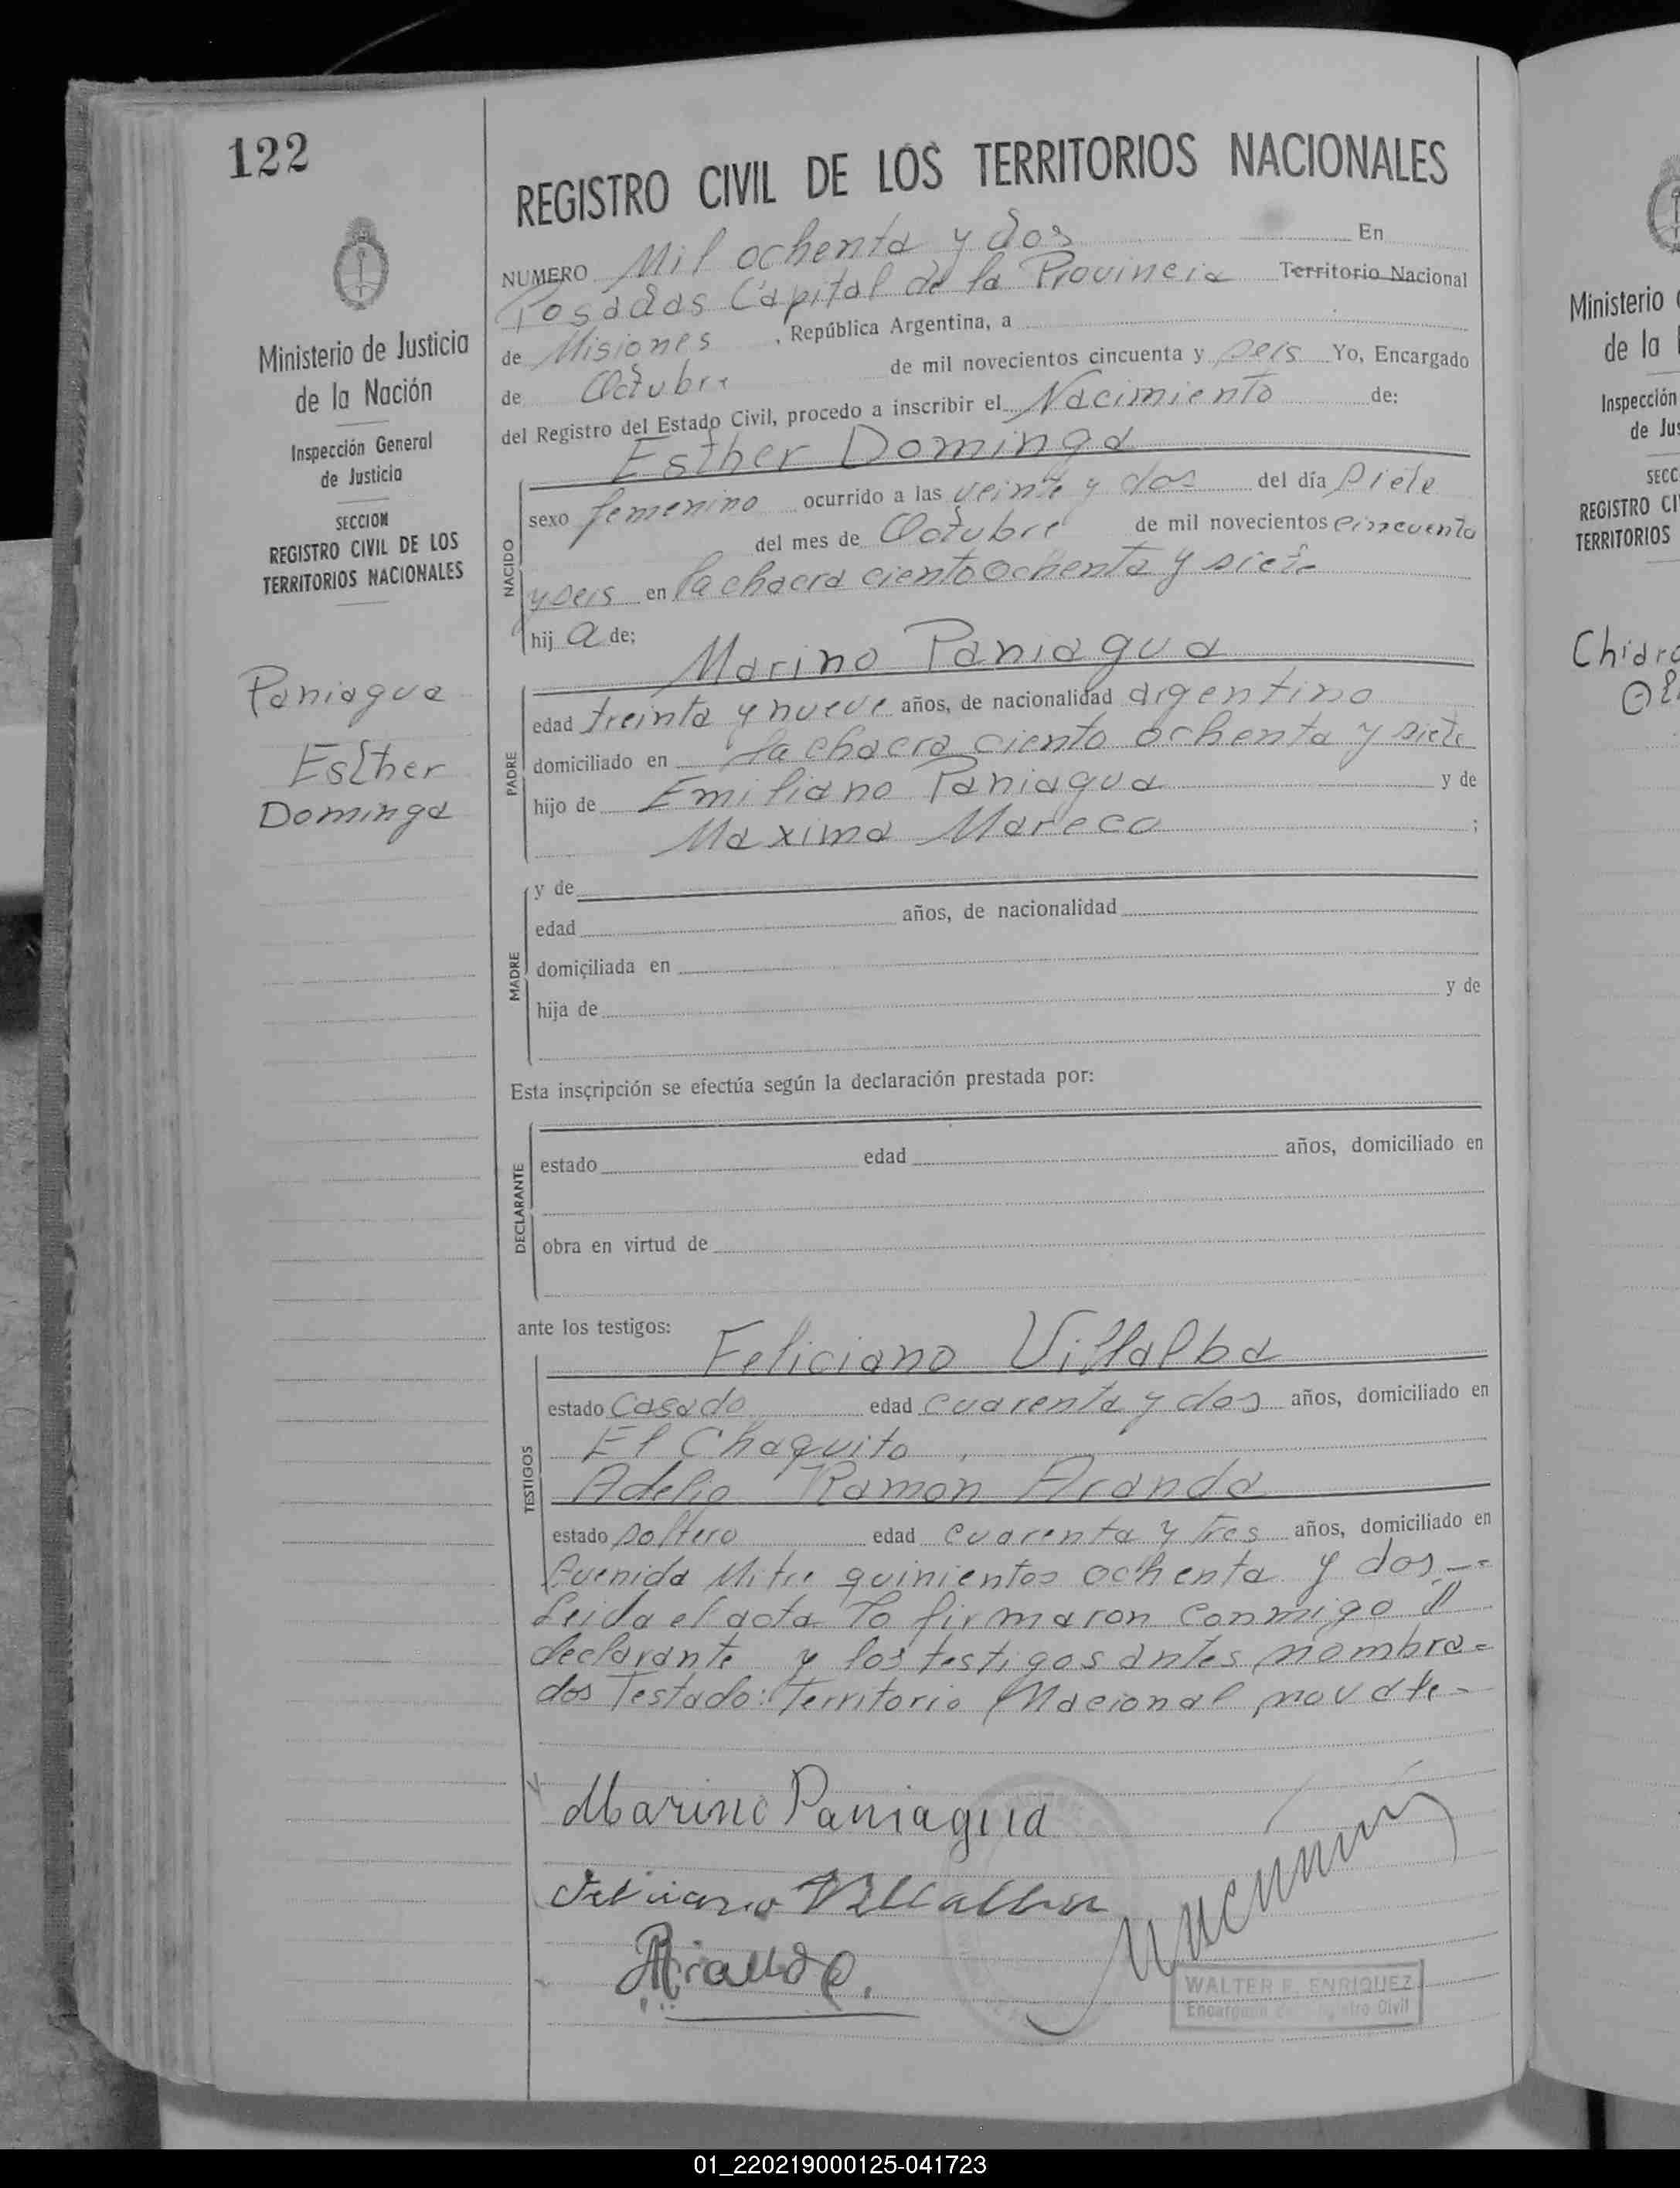 122
REGISTRO CIVIL DE LOS TERRITORIOS NACIONALES
NUMERO Mil ochenta y dos En
Posadas Capital de la Provincia Territorio Nacional
de Misiones , República Argentina, a
de Octubre de mil novecientos cincuenta y seis Yo, Encargado
del Registro del Estado Civil, procedo a inscribir el Nacimiento de:
Esther Dominga
sexo femenino ocurrido a las veinte y dos del día siete
del mes de Octubre de mil novecientos cincuenta
y seis en la chacra ciento ochenta y siete
hij a de;
NACIDO
Marino Paniagua
edad treinta y nueve años, de nacionalidad argentino
domiciliado en la chacra ciento ochenta y siete
hijo de Emiliano Paniagua y de
Maxima Mareco ;
PADRE
y de
edad años, de nacionalidad
domiciliada en
hija de y de
MADRE
Esta inscripción se efectúa según la declaración prestada por:
estado edad años, domiciliado en
obra en virtud de
DECLARANTE
ante los testigos:
Feliciano Villalba
estado casado edad cuarenta y dos años, domiciliado en
El Chaquito
Adelio Ramon Aranda
estado soltero edad cuarenta y tres años, domiciliado en
TESTIGOS
Avenida Mitre quinientos ochenta y dos
Leida el acta lo firmaron conmigo el
declarante y los testigos antes nombra=
dos Testado: Territorio Nacional,
Marino Paniagua
Feliciano Villalba
WALTER E. ENRIQUEZ
Encargado Registro Civil
Ministerio de Justicia
de la Nación
Inspección General
de Justicia
SECCION
REGISTRO CIVIL DE LOS
TERRITORIOS NACIONALES
Paniagua
Esther
Dominga
Ministerio
de la
Inspección
de Jus
SECC
REGISTRO CI
TERRITORIOS
Chidro
01_220219000125-041723